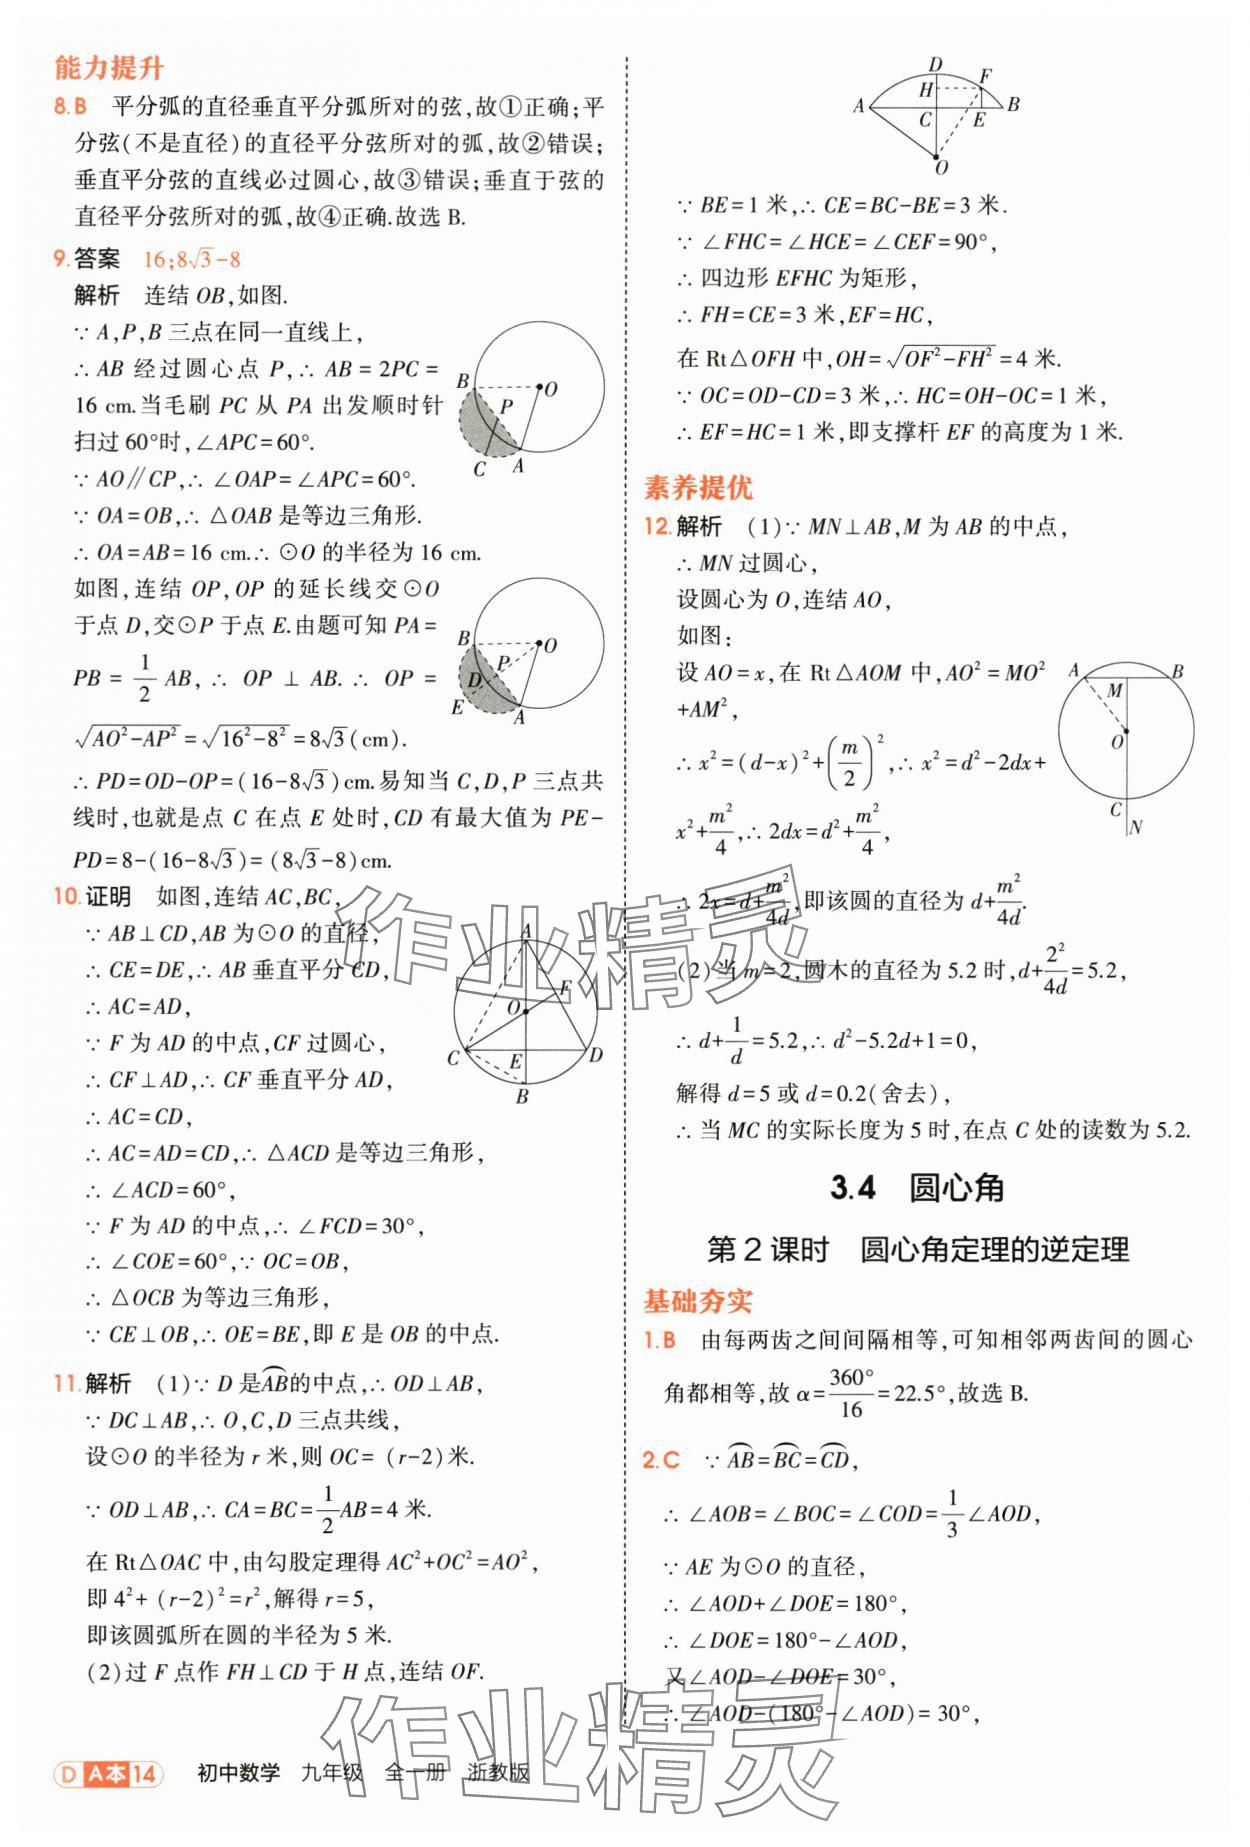 能力提升
8.B 平分弧的直径垂直平分弧所对的弦,故①正确;平
分弦(不是直径)的直径平分弦所对的弧,故②错误;
垂直平分弦的直线必过圆心,故③错误;垂直于弦的
直径平分弦所对的弧,故④正确.故选 B.
9.答案 16;8√3-8
解析 连结 OB,如图.
∵ A,P,B 三点在同一直线上,
∴ AB 经过圆心点 P,∴ AB=2PC=
16 cm.当毛刷 PC 从 PA 出发顺时针
扫过 60°时,∠APC=60°.
∵ AO∥CP,∴ ∠OAP=∠APC=60°.
∵ OA=OB,∴ △OAB 是等边三角形.
∴ OA=AB=16 cm.∴ ⊙O 的半径为 16 cm.
B O P C A
如图,连结 OP,OP 的延长线交⊙O
于点 D,交⊙P 于点 E.由题可知 PA=
PB=1/2 AB,∴ OP⊥AB.∴ OP=
√(AO²-AP²)=√(16²-8²)=8√3(cm).
B O P D E A
∴ PD=OD-OP=(16-8√3)cm.易知当 C,D,P 三点共
线时,也就是点 C 在点 E 处时,CD 有最大值为 PE-
PD=8-(16-8√3)=(8√3-8)cm.
10.证明 如图,连结 AC,BC,
∵ AB⊥CD,AB 为⊙O 的直径,
∴ CE=DE,∴ AB 垂直平分 CD,
∴ AC=AD,
∵ F 为 AD 的中点,CF 过圆心,
∴ CF⊥AD,∴ CF 垂直平分 AD,
∴ AC=CD,
A F O C E D B
∴ AC=AD=CD,∴ △ACD 是等边三角形,
∴ ∠ACD=60°,
∵ F 为 AD 的中点,∴ ∠FCD=30°,
∴ ∠COE=60°,∵ OC=OB,
∴ △OCB 为等边三角形,
∵ CE⊥OB,∴ OE=BE,即 E 是 OB 的中点.
11.解析 (1)∵ D 是⌒AB的中点,∴ OD⊥AB,
∵ DC⊥AB,∴ O,C,D 三点共线,
设⊙O 的半径为 r 米,则 OC=(r-2)米.
∵ OD⊥AB,∴ CA=BC=1/2 AB=4 米.
在 Rt△OAC 中,由勾股定理得 AC²+OC²=AO²,
即 4²+(r-2)²=r²,解得 r=5,
即该圆弧所在圆的半径为 5 米.
(2)过 F 点作 FH⊥CD 于 H 点,连结 OF.
D F H A C E B O
∵ BE=1 米,∴ CE=BC-BE=3 米.
∵ ∠FHC=∠HCE=∠CEF=90°,
∴ 四边形 EFHC 为矩形,
∴ FH=CE=3 米,EF=HC,
在 Rt△OFH 中,OH=√(OF²-FH²)=4 米.
∵ OC=OD-CD=3 米,∴ HC=OH-OC=1 米,
∴ EF=HC=1 米,即支撑杆 EF 的高度为 1 米.
素养提优
12.解析 (1)∵ MN⊥AB,M 为 AB 的中点,
∴ MN 过圆心,
设圆心为 O,连结 AO,
如图:
设 AO=x,在 Rt△AOM 中,AO²=MO²
+AM²,
∴ x²=(d-x)²+(m/2)²,∴ x²=d²-2dx+
x²+m²/4,∴ 2dx=d²+m²/4,
A B M O C N
∴ 2x=d+m²/4d,即该圆的直径为 d+m²/4d.
(2)当 m=2,圆木的直径为 5.2 时,d+2²/4d=5.2,
∴ d+1/d=5.2,∴ d²-5.2d+1=0,
解得 d=5 或 d=0.2(舍去),
∴ 当 MC 的实际长度为 5 时,在点 C 处的读数为 5.2.
3.4 圆心角
第 2 课时 圆心角定理的逆定理
基础夯实
1.B 由每两齿之间间隔相等,可知相邻两齿间的圆心
角都相等,故 α=360°/16=22.5°,故选 B.
2.C ∵ ⌒AB=⌒BC=⌒CD,
∴ ∠AOB=∠BOC=∠COD=1/3∠AOD,
∵ AE 为⊙O 的直径,
∴ ∠AOD+∠DOE=180°,
∴ ∠DOE=180°-∠AOD,
又∠AOD-∠DOE=30°,
∴ ∠AOD-(180°-∠AOD)=30°,
D A本 14 初中数学 九年级 全一册 浙教版
作业精灵
作业精灵